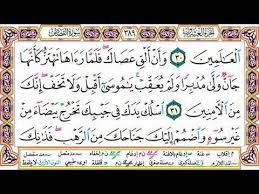 ٣٨٩
ٱلْعَٰلَمِينَ ٣٠ وَأَنْ أَلْقِ عَصَاكَ ۖ فَلَمَّا رَءَاهَا تَهْتَزُّ كَأَنَّهَا
جَآنٌّ وَلَّىٰ مُدْبِرًا وَلَمْ يُعَقِّبْ ۚ يَٰمُوسَىٰٓ أَقْبِلْ وَلَا تَخَفْ ۖ إِنَّكَ
مِنَ ٱلْءَامِنِينَ ٣١ ٱسْلُكْ يَدَكَ فِى جَيْبِكَ تَخْرُجْ بَيْضَآءَ مِنْ
غَيْرِ سُوٓءٍ وَٱضْمُمْ إِلَيْكَ جَنَاحَكَ مِنَ ٱلرَّهْبِ ۖ فَذَٰنِكَ